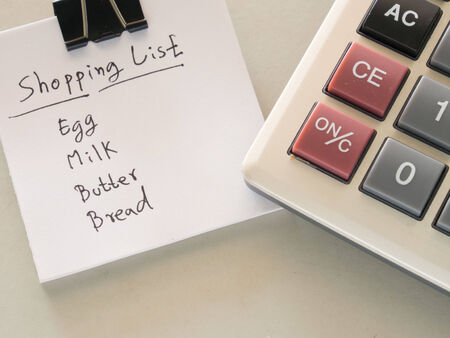 Shopping List
Egg
Milk
Butter
Bread
AC
CE
ON/C
1
0